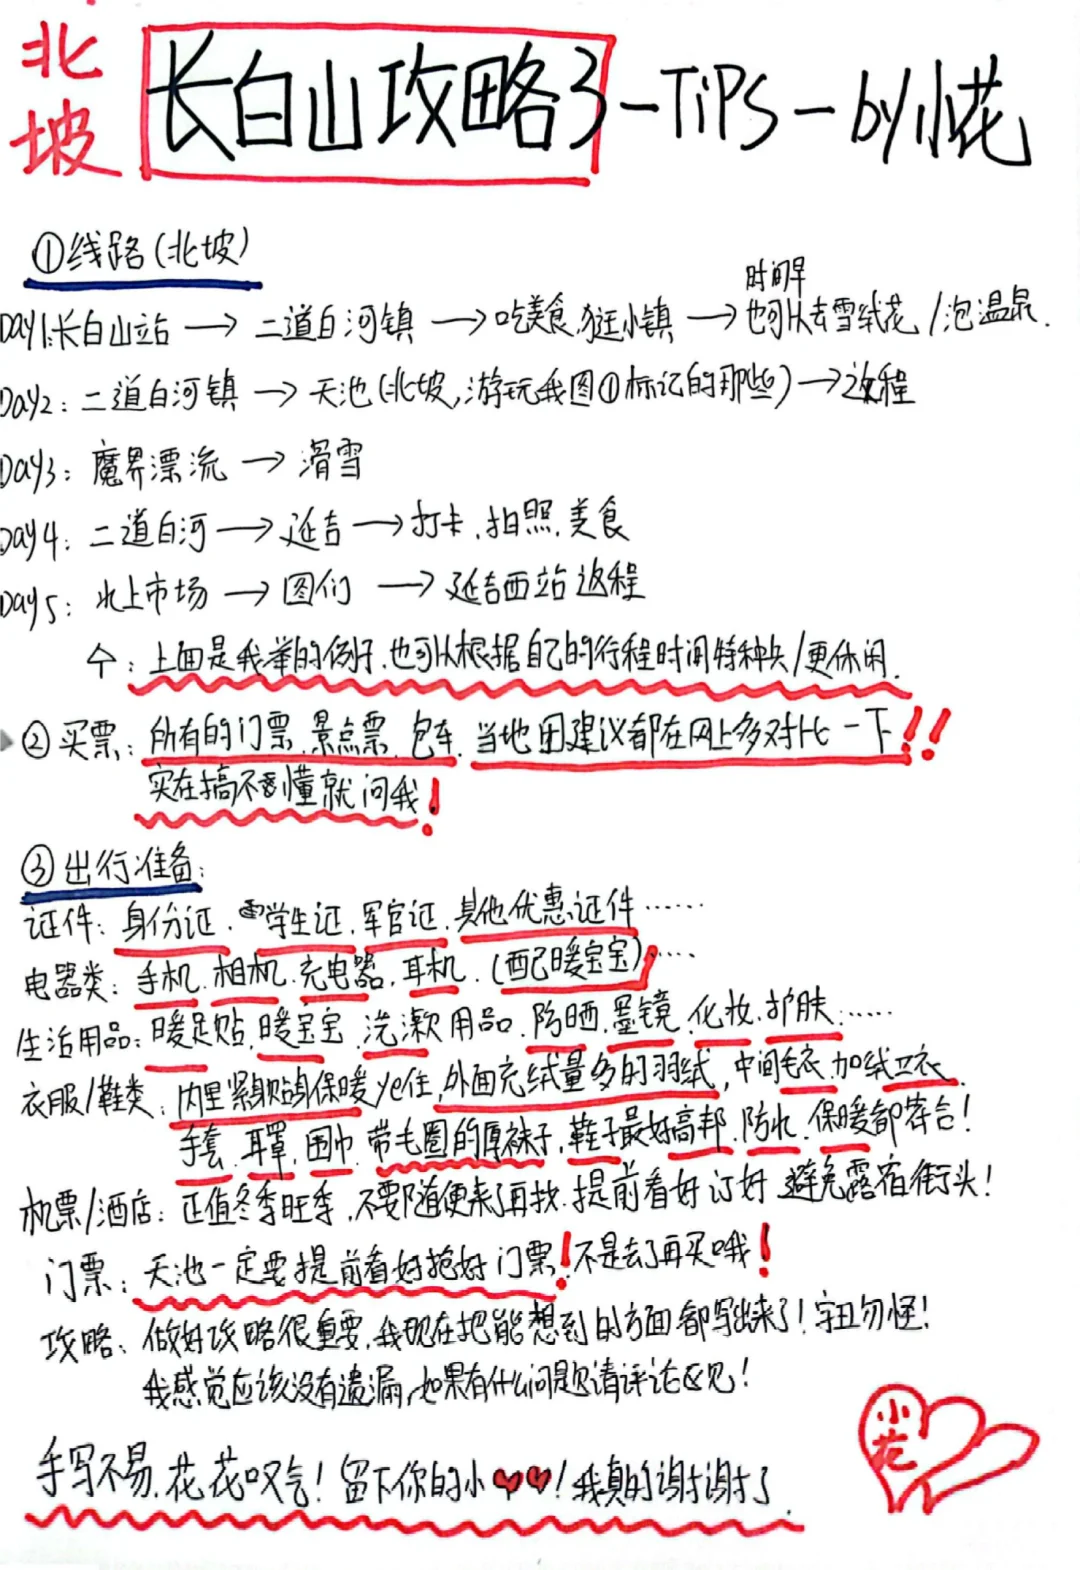 北坡
长白山攻略3-TiPS-by小花
①线路(北坡)
时间早
Day1:长白山站→二道白河镇→吃美食.逛小镇→也可以去雪绒花/泡温泉.
Day2:二道白河镇→天池(北坡,游玩我图①标记的那些)→返程
Day3:魔界漂流→滑雪
Day4:二道白河→延吉→打卡.拍照.美食
Day5:水上市场→图们→延吉西站返程
个:上面是我举的例子.也可以根据自己的行程时间特种兵/更休闲.
②买票:所有的门票.景点票.包车.当地团建议都在网上多对比一下!!
实在搞不懂就问我!
③出行准备:
证件:身份证.学生证.军官证.其他优惠证件……
电器类:手机.相机.充电器.耳机.(自己暖宝宝)……
生活用品:暖足贴.暖宝宝.洗漱用品.防晒.墨镜.化妆.护肤……
衣服/鞋类:内里紧贴身保暖ye住,外面充绒量多的羽绒,中间毛衣.加绒卫衣.
手套.耳罩.围巾.带毛圈的厚袜子,鞋子最好高邦.防水.保暖都符合!
机票/酒店:正值冬季旺季,不要随便来了再找.提前看好订好避免露宿街头!
门票:天池一定要提前看好抢好门票!不是去了再买哦!
攻略:做好攻略很重要,我现在把能想到的方面都写出来了!字丑勿怪!
我感觉应该没有遗漏,如果有什么问题请评论区见!
手写不易.花花叹气!留下你的小❤❤!我真的谢谢了.
小花